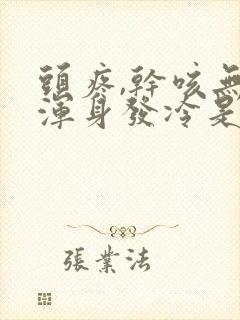 頭疼,幹咳無
渾身發冷是
張業法